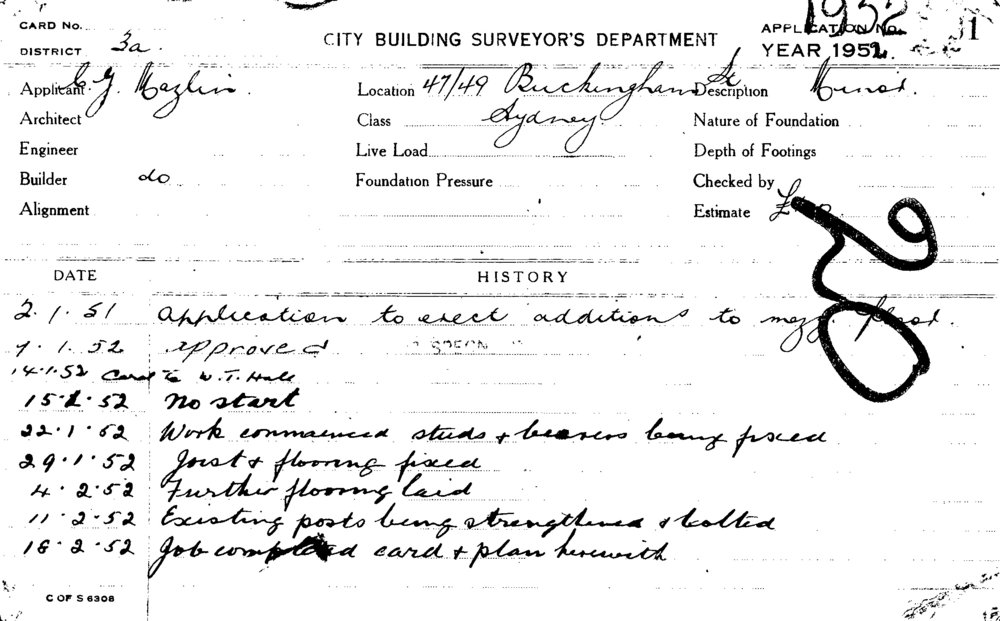 1952
CARD No.
DISTRICT 3a.
CITY BUILDING SURVEYOR'S DEPARTMENT
APPLICATION No. 31
YEAR 1952.
Applicant C. G. Hazlin.
Location 47/49 Buckingham St
Sydney.
Description Minor.
Architect
Class
Nature of Foundation
Engineer
Live Load
Depth of Footings
Builder do
Foundation Pressure
Checked by
Alignment
Estimate £
DATE HISTORY
2.1.51 Application to erect additions to mezz. floor.
7.1.52 approved
14.1.52 Card to W.T. Hall
15.1.52 No start
22.1.52 Work commenced studs & bearers being fixed
29.1.52 Joist & flooring fixed
4.2.52 Further flooring laid
11.2.52 Existing posts being strengthened & bolted
18.2.52 Job completed card & plan herewith
C OF S 6308